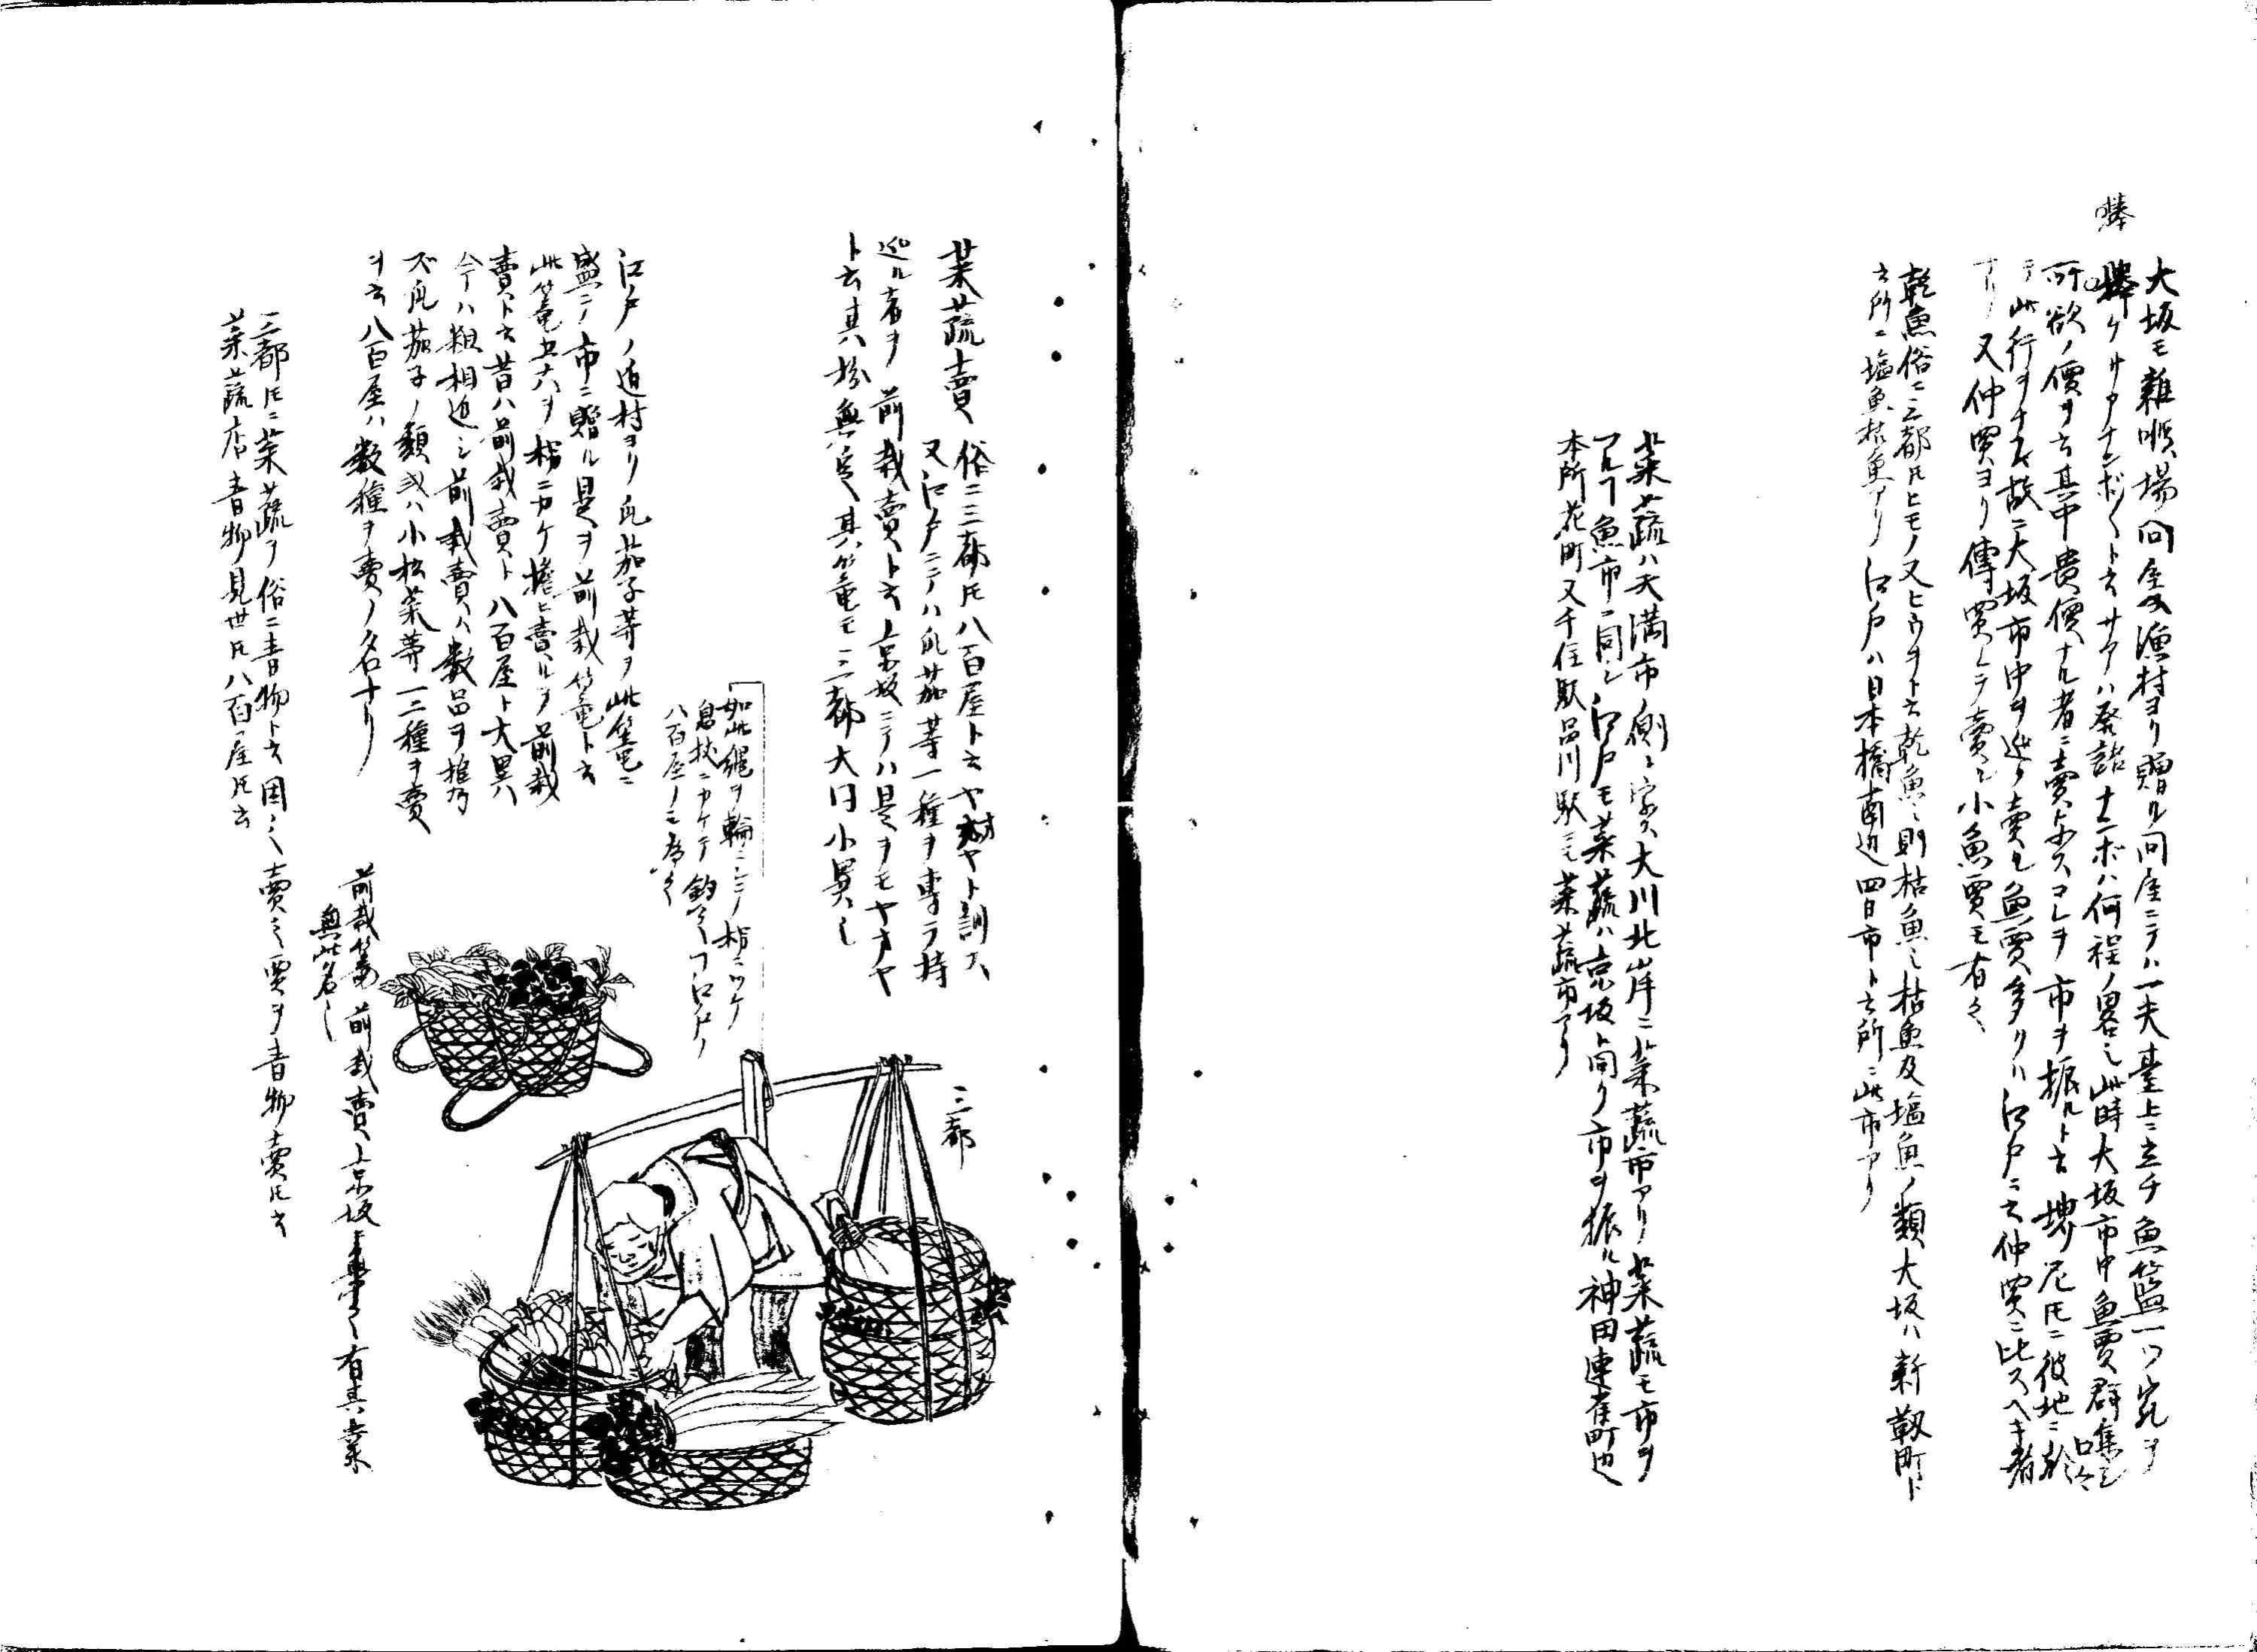 捧
大坂モ雑喉場問屋ニ漁村ヨリ贈ル問屋ニテハ一夫臺上ニ立チ魚籃一ツ宛ヲ
捧ケサアナンボ〱ト云サアハ発語ナンボハ何程ノ畧也此時大坂市中魚賈群集シ口々ニ
所欲ノ價ヲ云其中貴價ナル者ニ賣与スコレヲ市ヲ振ルト云堺尼トモニ彼地ニ於
テ此行ヲナス故ニ大坂市中ヲ巡リ賣ル魚賈多クハ江戸ニ云仲買ニ比スヘキ者
ナリ又仲買ヨリ傳買シテ賣之小魚賈モ有之
乾魚俗ニ三都トモヒモノ又ヒウヲト云乾魚ハ則枯魚也枯魚及塩魚ノ類大坂ハ新靱町ト
云所ニ塩魚枯魚アリ江戸ハ日本橋南辺四日市ト云所ニ此市アリ
菜蔬ハ天満市側ト字ス大川北岸ニ菜蔬市アリ菜蔬モ市ヲ
フルフ魚市ニ同シ江戸モ菜蔬ハ京坂ト同ク市ヲ振ル神田連雀町也
本所花町又千住駅品川駅ニモ菜蔬市アリ
菜蔬賣 俗ニ三都トモ八百屋ト云ヤオヤト訓ス
又江戸ニテハ瓜茄等一種ヲ専ラ持
巡ル者ヲ前栽賣ト云京坂ニテハ是ヲモヤオヤ
ト云其扮無定其篭モ三都大同小異也
如此縄ヲ輪ニシテ枴ニツケ
息杖ニカケテ釣之コト江戸ノ
八百屋ノミ為之
江戸ノ近村ヨリ瓜茄子等ヲ此篭ニ
盛ニノ市ニ贈ル是ヲ前栽篭ト云
此篭五六ヲ枴ニカケ擔ヒ賣ルヲ前栽
賣ト云昔ハ前栽賣ト八百屋ト大異ハ
今ハ粗相近シ前栽賣ハ数品ヲ携ヘ
ズ瓜茄子ノ類或ハ小松菜等一二種ヲ賣
ヲ云八百屋ハ数種ヲ賣ノ名ナリ
前栽篭 前栽賣 京坂ニ無之有其業
無此名也
三都トモニ菜蔬ヲ俗ニ青物ト云因之賣之賈ヲ青物賣トモ云
菜蔬店青物見世トモ八百屋トモ云
三都